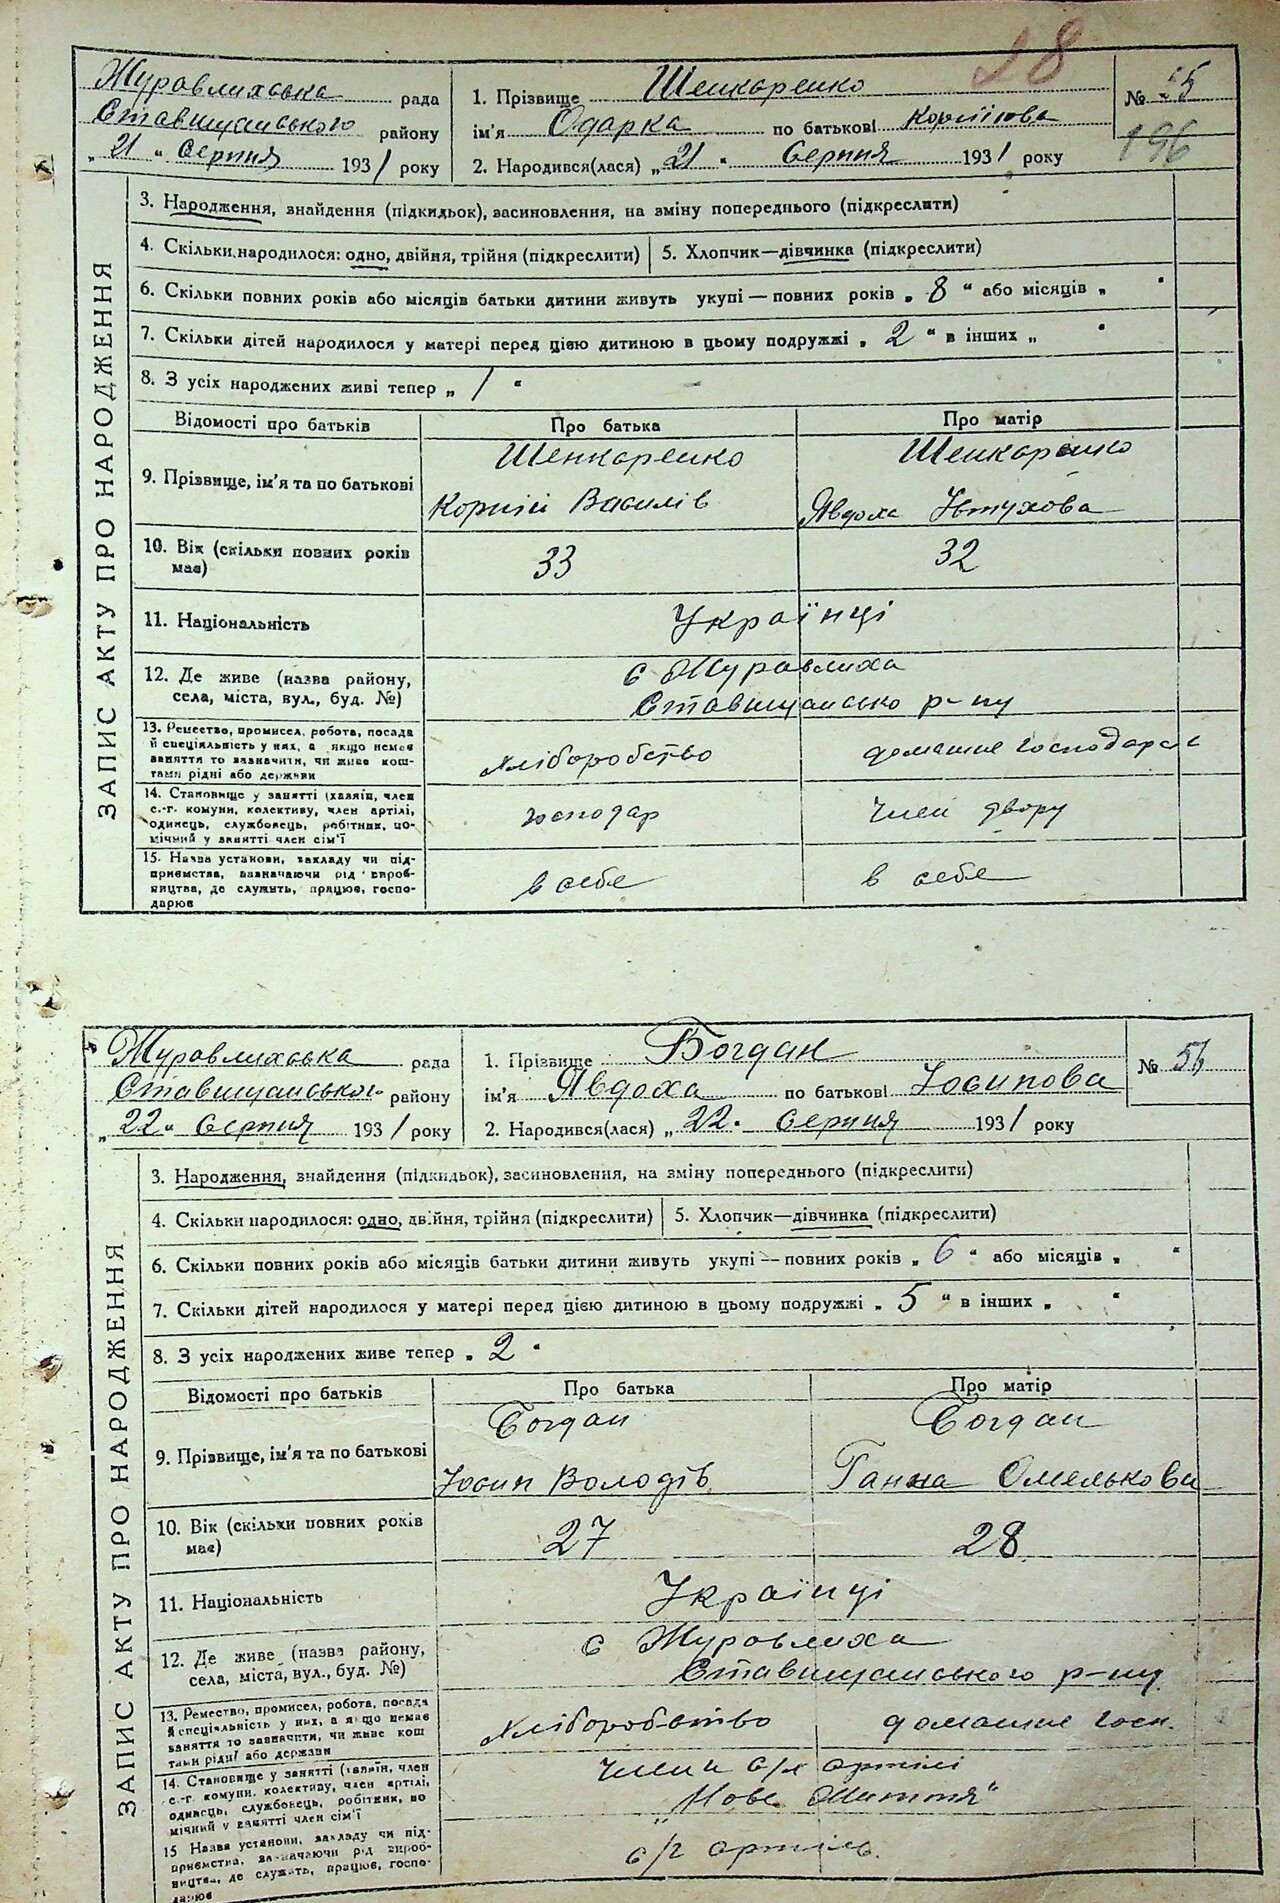 28
Журавлихська рада
Ставищанського району
„ 21 " Серпня 1931 року
1. Прізвище Шенкаренко
ім'я Одарка по батькові Корніїова
2. Народився(лася) „ 21 " Серпня 1931 року
№ 55
196
ЗАПИС АКТУ ПРО НАРОДЖЕННЯ
3. Народження, знайдення (підкидьок), васиновлення, на зміну попереднього (підкреслити)
4. Скільки народилося: одно, двійня, трійня (підкреслити) 5. Хлопчик—дівчинка (підкреслити)
6. Скільки повних років або місяців батьки дитини живуть укупі — повних років „ 8 " або місяців „ "
7. Скільки дітей народилося у матері перед цією дитиною в цьому подружжі „ 2 " в інших „ "
8. З усіх народжених живі тепер „ 1 "
Відомості про батьків Про батька Про матір
9. Прізвище, ім'я та по батькові
Шенкаренко Шенкаренко
Корній Василів Явдоха Ювтухова
10. Вік (скільки повних років має) 33 32
11. Національність Українці
12. Де живе (назва району, села, міста, вул., буд. №)
с Журавлиха
Ставищансько р-ну
13. Ремество, промисел, робота, посада й спеціяльність у них, а якщо немає заняття то зазначити, чи живе коштами рідні або держави
хліборобство домашнє господарст
14. Становище у занятті (хазяїн, член с.-г. комуни, колективу, член артілі, одинець, службовець, робітник, помічний у занятті член сім'ї
господар член двору
15. Назва установи, закладу чи підприємства, вазначаючи рід виробництва, де служить, працює, господарює
в себе в себе
Журавлихська рада
Ставищанського району
„ 22 " Серпня 1931 року
1. Прізвище Богдан
ім'я Явдоха по батькові Йосипова
2. Народився(лася) „ 22 " Серпня 1931 року
№ 56
ЗАПИС АКТУ ПРО НАРОДЖЕННЯ
3. Народження, знайдення (підкидьок), засиновлення, на зміну попереднього (підкреслити)
4. Скільки народилося: одно, двійня, трійня (підкреслити) 5. Хлопчик—дівчинка (підкреслити)
6. Скільки повних років або місяців батьки дитини живуть укупі — повних років „ 6 " або місяців „ "
7. Скільки дітей народилося у матері перед цією дитиною в цьому подружжі „ 5 " в інших „ "
8. З усіх народжених живе тепер „ 2 "
Відомості про батьків Про батька Про матір
9. Прізвище, ім'я та по батькові
Богдан Богдан
Йосип Володів Ганна Омелькова
10. Вік (скільки повних років має) 27 28
11. Національність Українці
12. Де живе (назва району, села, міста, вул., буд. №)
с Журавлиха
Ставищанського р-ну
13. Ремество, промисел, робота, посада й спеціяльність у них, а якщо немає заняття то зазначити, чи живе коштами рідні або держави
хліборобство домашнє госп.
14. Становище у занятті (хазяїн, член с.-г. комуни, колективу, член артілі, одинець, службовець, робітник, помічний у занятті член сім'ї
члени с/г артілі
„Нове Життя"
15 Назва установи, закладу чи підприємства, зазначаючи рід виробництва, де служить, працює, господарює
с/г артіль.